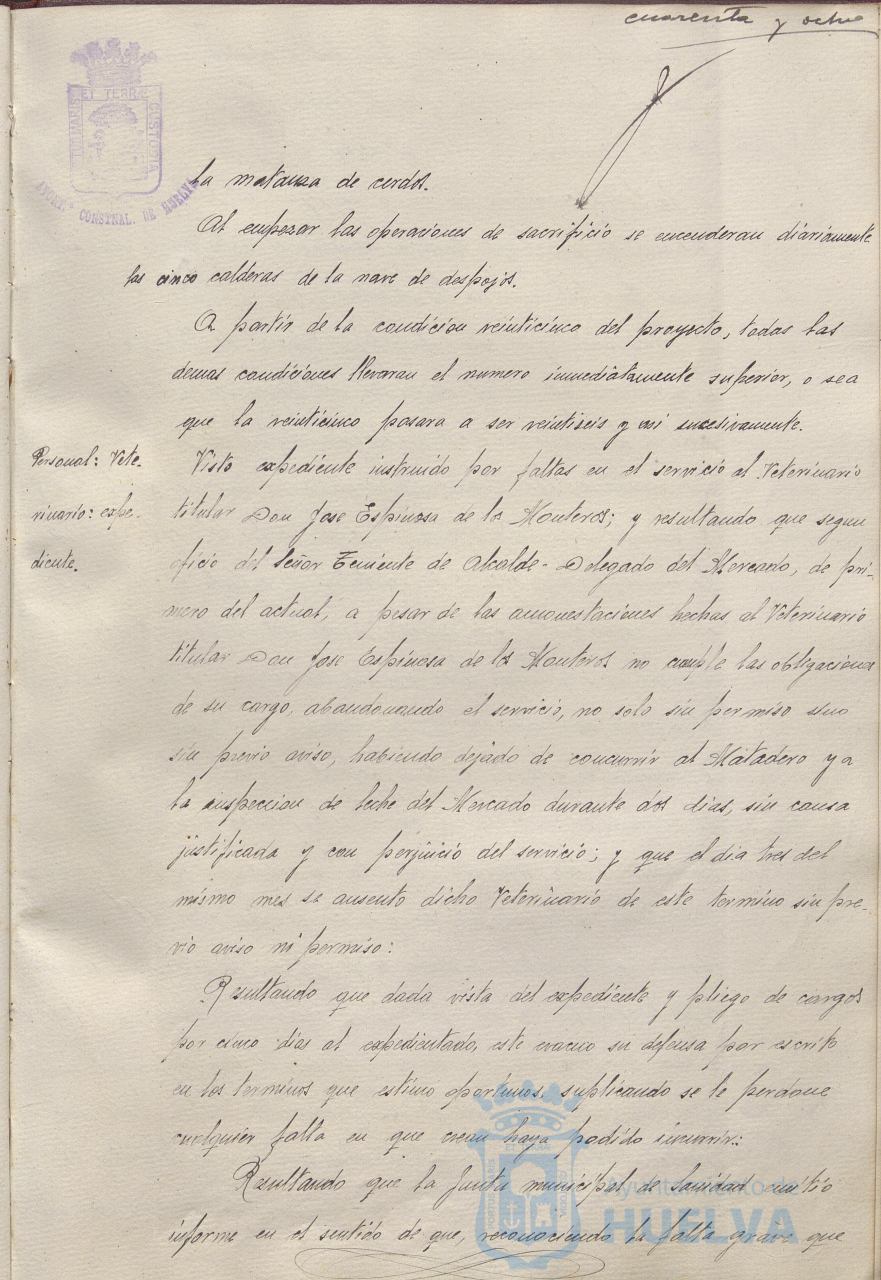 cuarenta y ocho
PORTUM MARIS ET TERRÆ CUSTODIA
AYUNT.º CONSTNAL. DE HUELVA
la matanza de cerdos.
Al empezar las operaciones de sacrificio se encenderan diariamente
las cinco calderas de la nave de despojos.
A partir de la condicion veinticinco del proyecto, todas las
demas condiciones llevaran el numero inmediatamente superior, o sea
que la veinticinco pasara a ser veintiseis y asi sucesivamente.
Personal: Vete-
rinario: expe-
diente.
Visto expediente instruido por faltas en el servicio al Veterinario
titular Don Jose Espinosa de los Monteros; y resultando que segun
oficio del Señor Teniente de Alcalde-Delegado del Mercado, de pri-
mero del actual, a pesar de las amonestaciones hechas al Veterinario
titular Don Jose Espinosa de los Monteros no cumple las obligaciones
de su cargo, abandonando el servicio, no solo sin permiso sino
sin previo aviso, habiendo dejado de concurrir al Matadero y a
la inspeccion de leche del Mercado durante dos dias, sin causa
justificada y con perjuicio del servicio; y que el dia tres del
mismo mes se ausento dicho Veterinario de este termino sin pre-
vio aviso ni permiso:
Resultando que dada vista del expediente y pliego de cargos
por cinco dias al expedientado, este evacuo su defensa por escrito
en los terminos que estimo oportunos, suplicando se le perdone
cualquier falta en que crean haya podido incurrir:
Resultando que la Junta municipal de Sanidad emitio
informe en el sentido de que, reconociendo la falta grave que
Ayuntamiento de
HUELVA